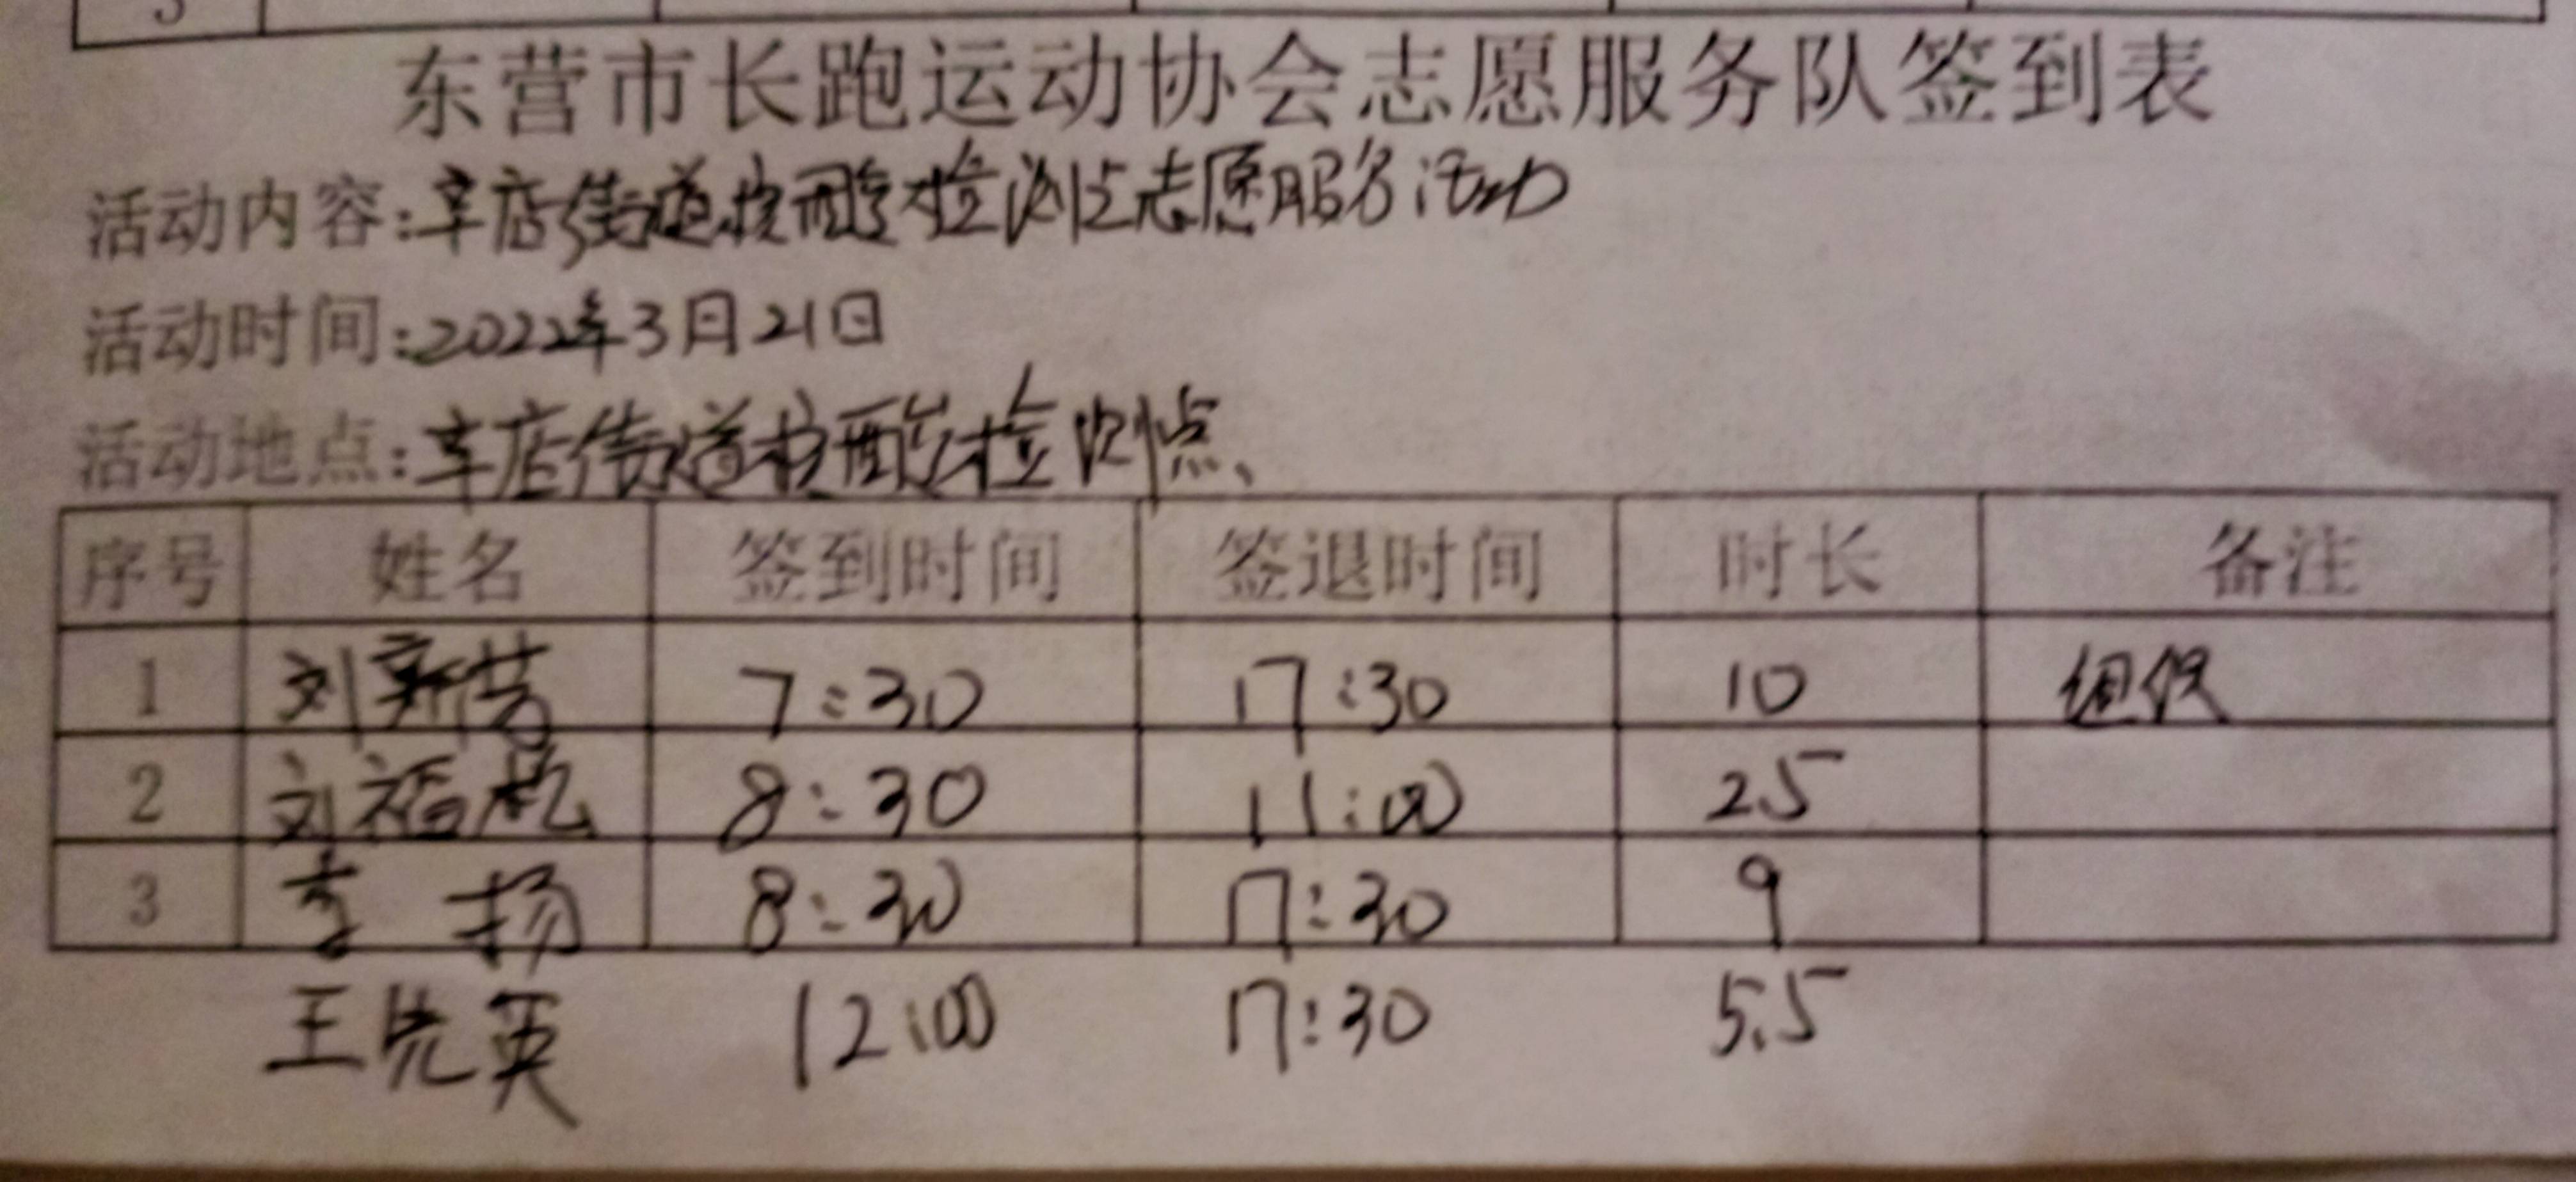 东营市长跑运动协会志愿服务队签到表
活动内容:辛店街道核酸检测点志愿服务活动
活动时间:2022年3月21日
活动地点:辛店街道核酸检测点
序号 姓名 签到时间 签退时间 时长 备注
1 刘新芳 7:30 17:30 10 组织
2 刘福 8:30 11:00 2.5
3 李扬 8:30 17:30 9
王先英 12:00 17:30 5.5